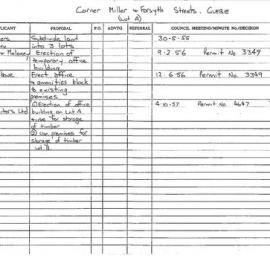 Corner Miller & Forsyth Streets.
(Lot A)
PROPOSAL P.O. ADVTG REFERRAL COUNCIL MEETING/MINUTE No./DECISION
Subdivide land 30-5-55
into 3 lotts
Maloney Erection of 9.2.56 Permit No 3349
temporary office
building
Erect office 12.6.56 Permit No
amenities block
to existing
premises
Ltd (1) Erection of office 4-10-57 Permit No.
building on Lot A
use for storage
of timber
(2) Use premises for
storage of timber
Lot B.